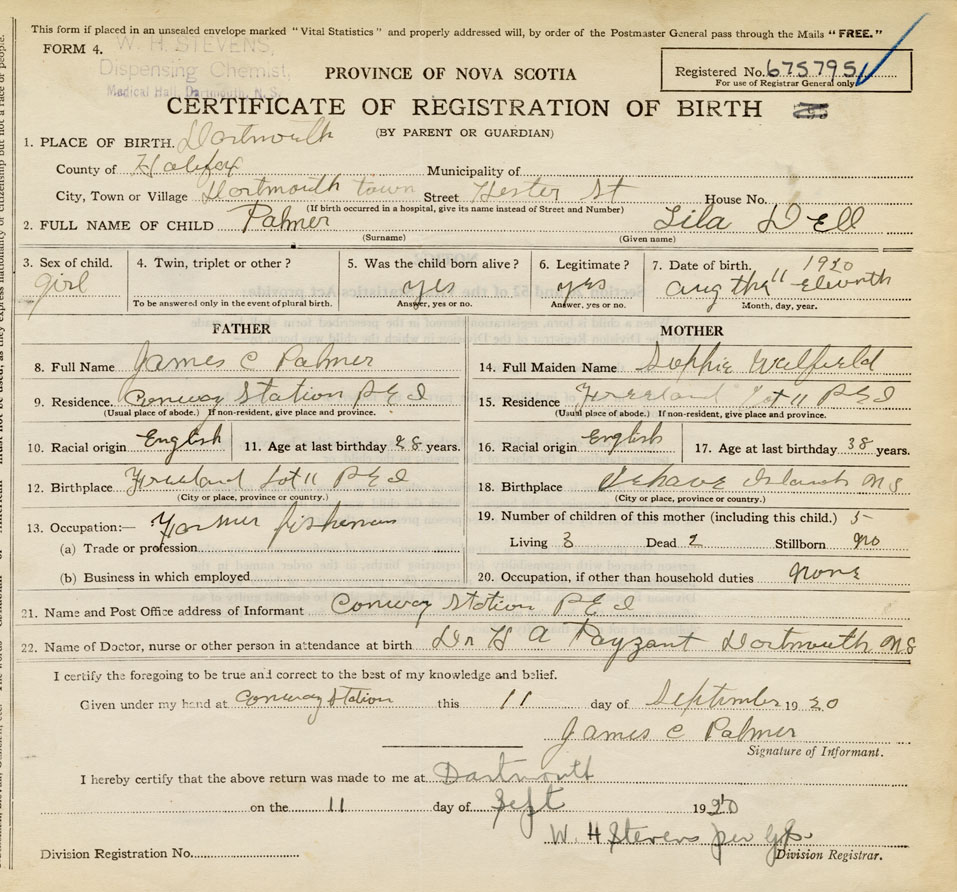 This form if placed in an unsealed envelope marked "Vital Statistics" and properly addressed will, by order of the Postmaster General pass through the Mails "FREE."
FORM 4.
W. H. STEVENS,
Dispensing Chemist,
Medical Hall, Dartmouth, N.S.
PROVINCE OF NOVA SCOTIA
Registered No. 675795
For use of Registrar General only
CERTIFICATE OF REGISTRATION OF BIRTH
(BY PARENT OR GUARDIAN)
1. PLACE OF BIRTH. Dortmouth
County of Halifax Municipality of
City, Town or Village Dortmouth town Street Hester St House No.
(If birth occurred in a hospital, give its name instead of Street and Number)
2. FULL NAME OF CHILD Palmer Lila D ell
(Surname) (Given name)
3. Sex of child. 4. Twin, triplet or other? 5. Was the child born alive? 6. Legitimate? 7. Date of birth. 1920
girl yes yes Aug the 11 Elewnth
To be answered only in the event of plural birth. Answer, yes or no. Answer, yes or no. Month, day, year.
FATHER
8. Full Name James C Palmer
9. Residence. Conway Station P E I
(Usual place of abode.) If non-resident, give place and province.
10. Racial origin English 11. Age at last birthday 28 years.
12. Birthplace Freeland Lot 11 P E I
(City or place, province or country.)
13. Occupation:— Farmer fisherman
(a) Trade or profession
(b) Business in which employed
MOTHER
14. Full Maiden Name Sophie
15. Residence Freeland Lot 11 P E I
(Usual place of abode.) If non-resident, give place and province.
16. Racial origin English 17. Age at last birthday 38 years.
18. Birthplace Islands N S
(City or place, province or country.)
19. Number of children of this mother (including this child.) 5
Living 3 Dead 2 Stillborn no
20. Occupation, if other than household duties none
21. Name and Post Office address of Informant Conway Station P E I
22. Name of Doctor, nurse or other person in attendance at birth Dr H A Payzant Dortmouth N.S
I certify the foregoing to be true and correct to the best of my knowledge and belief.
Given under my hand at Conway Station this 11 day of September 1920
James C Palmer
Signature of Informant.
I hereby certify that the above return was made to me at Dartmouth
on the 11 day of Sept 1920
W. H Stevens per
Division Registration No. Division Registrar.